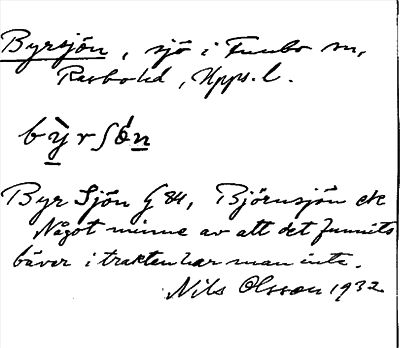 Byrsjön, sjö i Funbo sn,
Rasbo hd, Upps. l.
bỳrʃǿn
Byr Sjön G 84, Björnsjön ek
Något minne av att det funnits
bäver i trakten har man inte.
Nils Olsson 1932